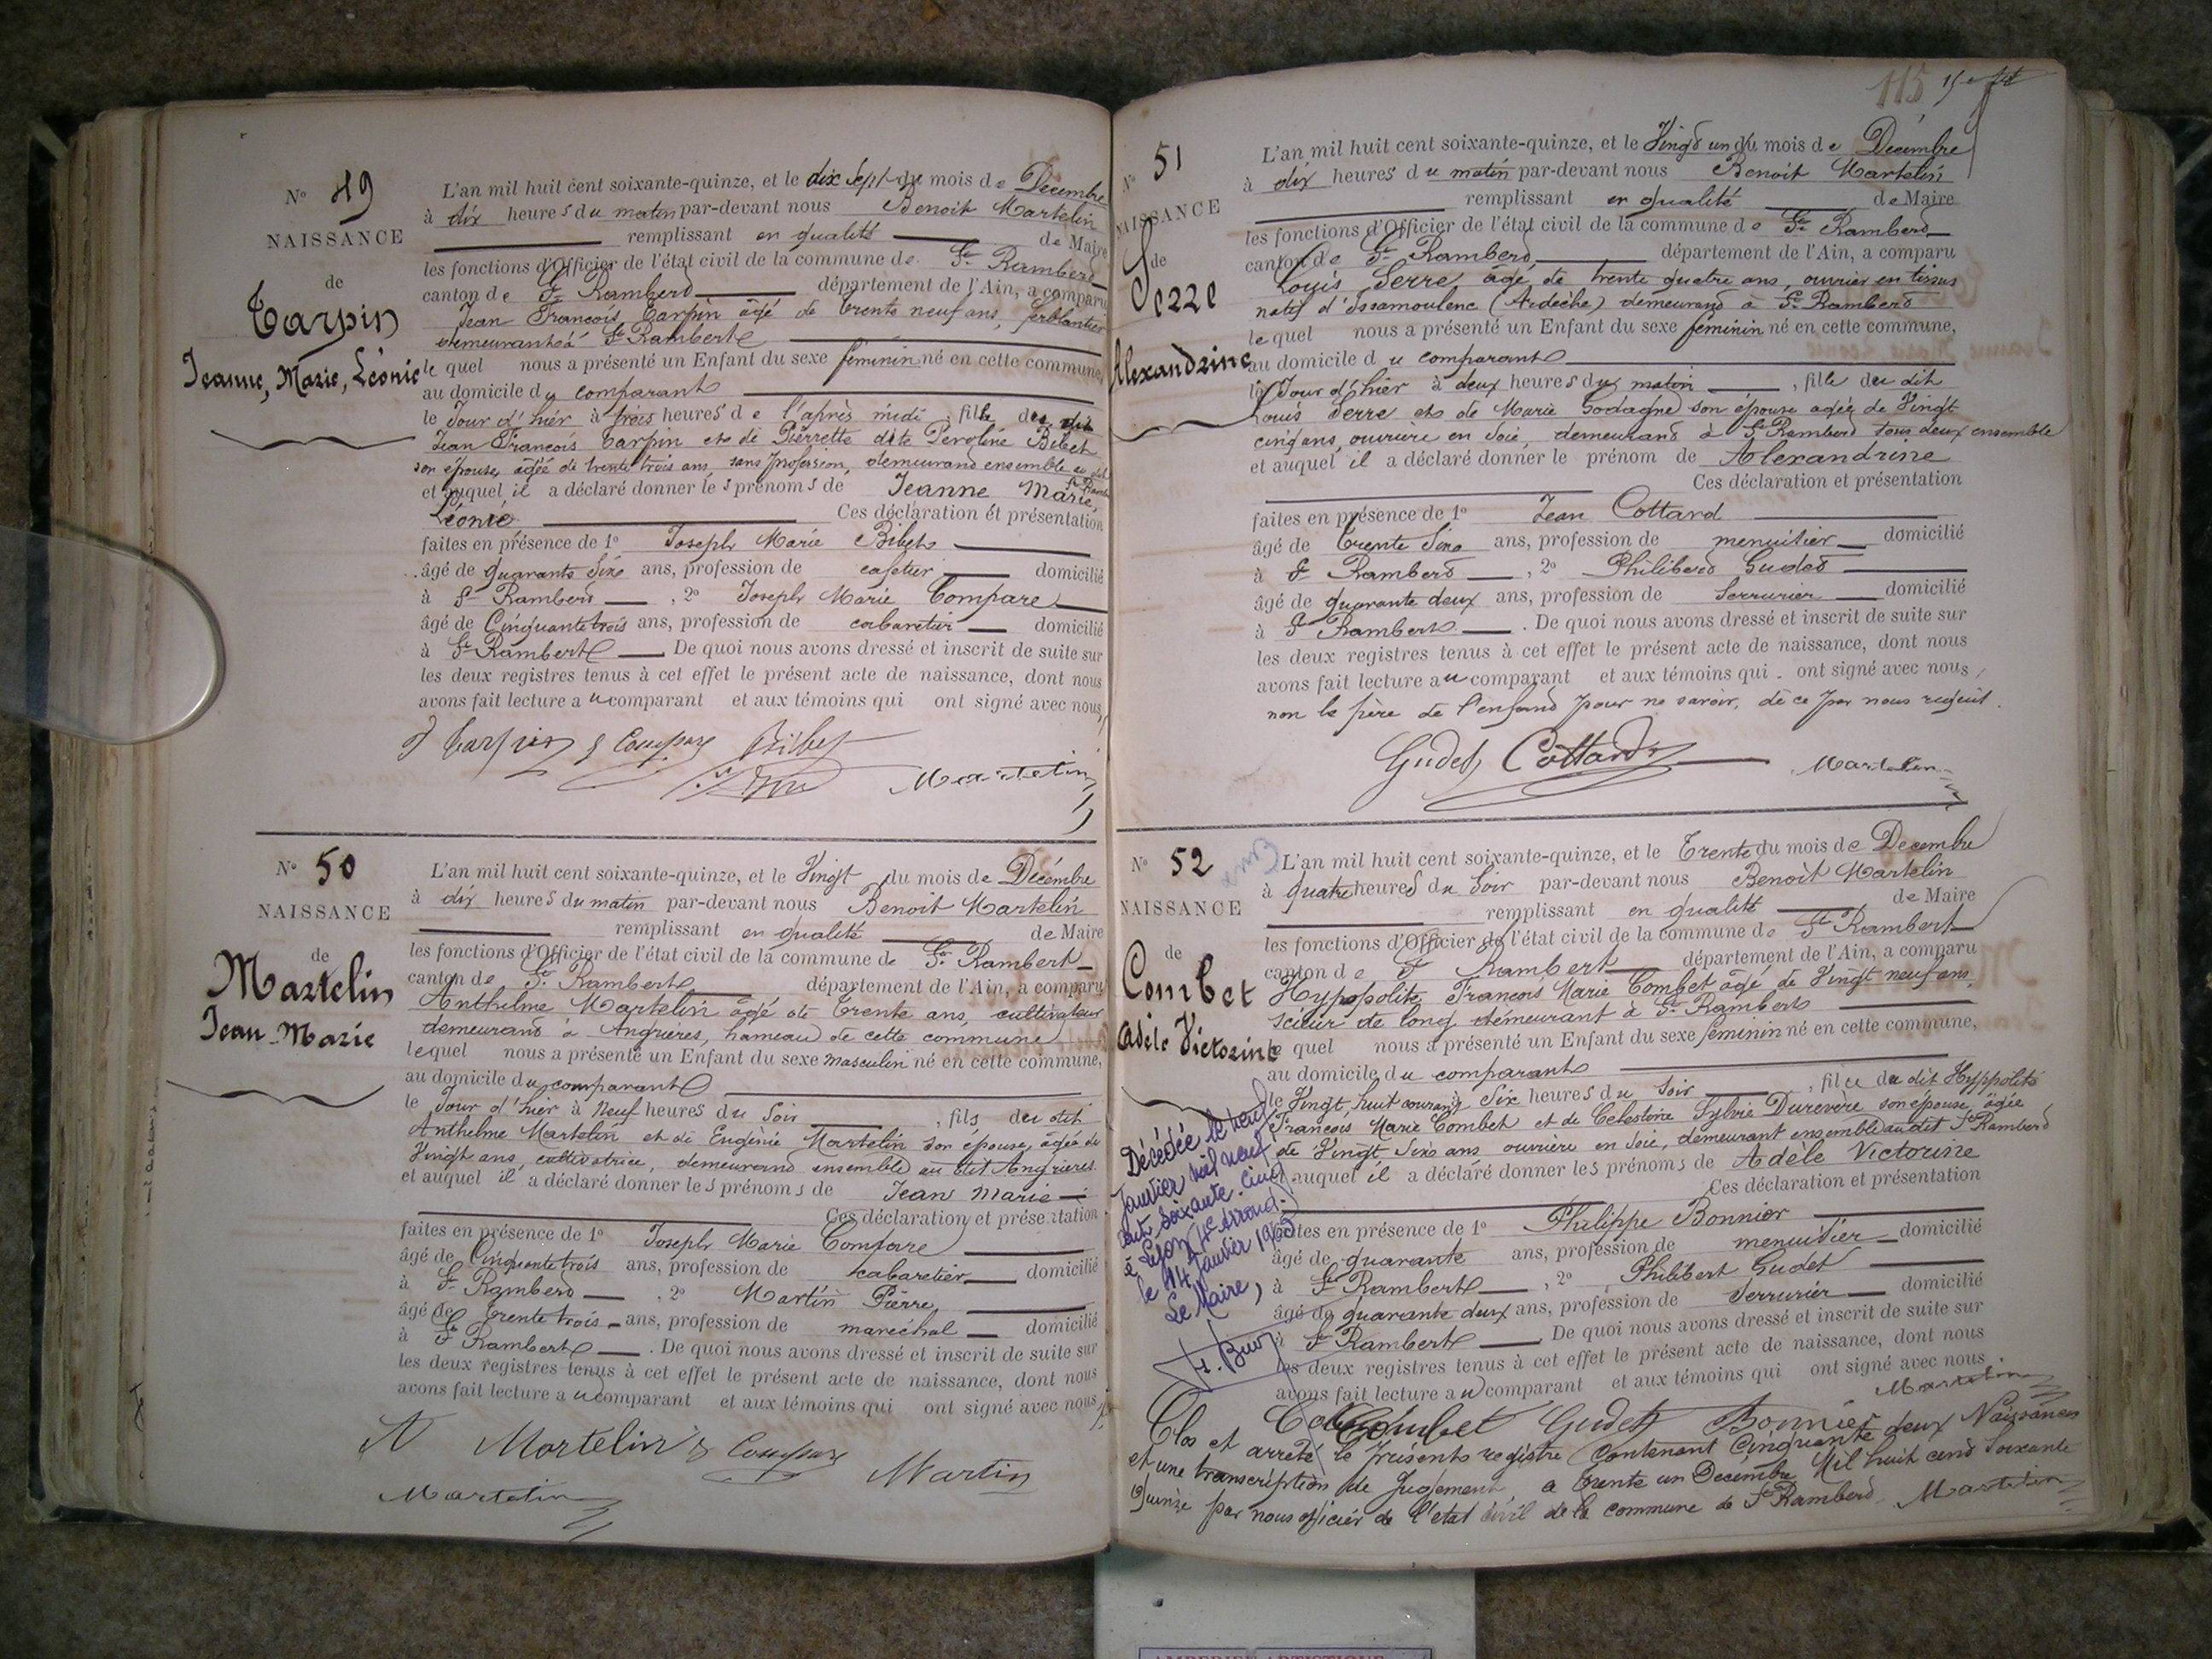 N° 49
NAISSANCE
de
Tarpin
Jeanne, Marie, Léonie
L'an mil huit cent soixante-quinze, et le dix sept du mois de Décembre
à dix heures du matin par-devant nous Benoit Martelin
remplissant en qualité de Maire
les fonctions d'Officier de l'état civil de la commune de St Rambert
canton de St Rambert département de l'Ain, a comparu
Jean François Tarpin âgé de trente neuf ans, ferblantier
demeurant à St Rambert
le quel nous a présenté un Enfant du sexe féminin né en cette commune,
au domicile du comparant
le Jour d'hier à trois heures de l'après midi, fille du dit
Jean François Tarpin et de Pierrette dite Peroline Bibet
son épouse, âgée de trente trois ans, sans profession, demeurant ensemble au dit
St Rambert
et auquel il a déclaré donner les prénoms de Jeanne Marie,
Léonie Ces déclaration et présentation
faites en présence de 1° Joseph Marie Bibet
âgé de quarante six ans, profession de cafetier domicilié
à St Rambert, 2° Joseph Marie Compare
âgé de Cinquante trois ans, profession de cabaretier domicilié
à St Rambert De quoi nous avons dressé et inscrit de suite sur
les deux registres tenus à cet effet le présent acte de naissance, dont nous
avons fait lecture au comparant et aux témoins qui ont signé avec nous
Tarpin Compare Bibet
Martelin
N° 50
NAISSANCE
de
Martelin
Jean-Marie
L'an mil huit cent soixante-quinze, et le Vingt du mois de Décembre
à dix heures du matin par-devant nous Benoit Martelin
remplissant en qualité de Maire
les fonctions d'Officier de l'état civil de la commune de St Rambert
canton de St Rambert département de l'Ain, a comparu
Anthelme Martelin âgé de trente ans, cultivateur
demeurant à Angrières, hameau de cette commune
lequel nous a présenté un Enfant du sexe masculin né en cette commune,
au domicile du comparant
le Jour d'hier à Neuf heures du Soir, fils du dit
Anthelme Martelin et de Eugènie Martelin son épouse, âgée de
Vingt ans, cultivatrice, demeurant ensemble au dit Angrieres
et auquel il a déclaré donner les prénoms de Jean Marie
Ces déclaration et présentation
faites en présence de 1° Joseph Marie Compare
âgé de Cinquante trois ans, profession de cabaretier domicilié
à St Rambert, 2° Martin Pierre,
âgé de trente trois ans, profession de maréchal domicilié
à St Rambert. De quoi nous avons dressé et inscrit de suite sur
les deux registres tenus à cet effet le présent acte de naissance, dont nous
avons fait lecture au comparant et aux témoins qui ont signé avec nous
A Martelin Compare Martin
Martelin
115
N° 51
NAISSANCE
de
Serre
Alexandrine
L'an mil huit cent soixante-quinze, et le Vingt un du mois de Décembre
à dix heures du matin par-devant nous Benoit Martelin
remplissant en qualité de Maire
les fonctions d'Officier de l'état civil de la commune de St Rambert
canton de St Rambert département de l'Ain, a comparu
Louis Serre âgé de trente quatre ans, ouvrier en tissus
natif d'Issamoulenc (Ardèche) demeurant à St Rambert
le quel nous a présenté un Enfant du sexe féminin né en cette commune,
au domicile du comparant
le Jour d'hier à deux heures du matin, fille du dit
Louis Serre et de Marie Godagne son épouse agée de Vingt
cinq ans, ouvrière en Soie, demeurant à St Rambert tous deux ensemble
et auquel il a déclaré donner le prénom de Alexandrine
Ces déclaration et présentation
faites en présence de 1° Jean Cottard
âgé de trente Six ans, profession de menuisier domicilié
à St Rambert, 2° Philibert Gudet
âgé de quarante deux ans, profession de Serrurier domicilié
à St Rambert. De quoi nous avons dressé et inscrit de suite sur
les deux registres tenus à cet effet le présent acte de naissance, dont nous
avons fait lecture au comparant et aux témoins qui ont signé avec nous,
non le père de l'enfant pour ne savoir, de ce par nous requis.
Gudet Cottard Martelin
N° 52
NAISSANCE
de
Combet
Adèle Victorine
L'an mil huit cent soixante-quinze, et le Trente du mois de Decembre
à quatre heures du Soir par-devant nous Benoit Martelin
remplissant en qualité de Maire
les fonctions d'Officier de l'état civil de la commune de St Rambert
canton de St Rambert département de l'Ain, a comparu
Hyppolite François Marie Combet âgé de Vingt neuf ans,
scieur de long demeurant à St Rambert
le quel nous a présenté un Enfant du sexe féminin né en cette commune,
au domicile du comparant
le Vingt huit courant à Six heures du Soir, fille du dit Hyppolite
François Marie Combet et de Celestine Sylvie Durevère son épouse, âgée
de Vingt Six ans ouvrière en Soie, demeurant ensemble au dit St Rambert
et auquel il a déclaré donner les prénoms de Adèle Victorine
Ces déclaration et présentation
faites en présence de 1° Philippe Bonnier
âgé de quarante ans, profession de menuisier domicilié
à St Rambert, 2° Philibert Gudet
âgé de quarante deux ans, profession de Serrurier domicilié
à St Rambert De quoi nous avons dressé et inscrit de suite sur
les deux registres tenus à cet effet le présent acte de naissance, dont nous
avons fait lecture au comparant et aux témoins qui ont signé avec nous
Martelin
Combet Gudet Bonnier
Décédée le neuf
Janvier mil neuf
cent soixante-cinq
à Lyon 4e arrond.
le 14 Janvier 1965
Le Maire,
Clos et arrêté le présent registre Contenant Cinquante deux Naissances
et une transcription de Jugement, a trente un Decembre Mil huit cent Soixante
Quinze par nous officier de l'etat civil de la commune de St Rambert. Martelin